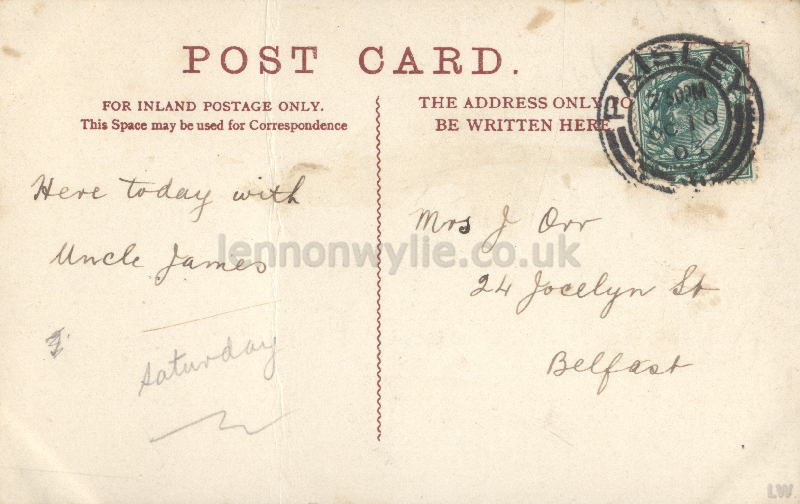 POST CARD.
FOR INLAND POSTAGE ONLY.
This Space may be used for Correspondence
THE ADDRESS ONLY TO
BE WRITTEN HERE
PAISLEY
7 30PM
OC 10
03
Here today with
Uncle James
Saturday
Mrs J Orr
24 Jocelyn St
Belfast
lennonwylie.co.uk
LW